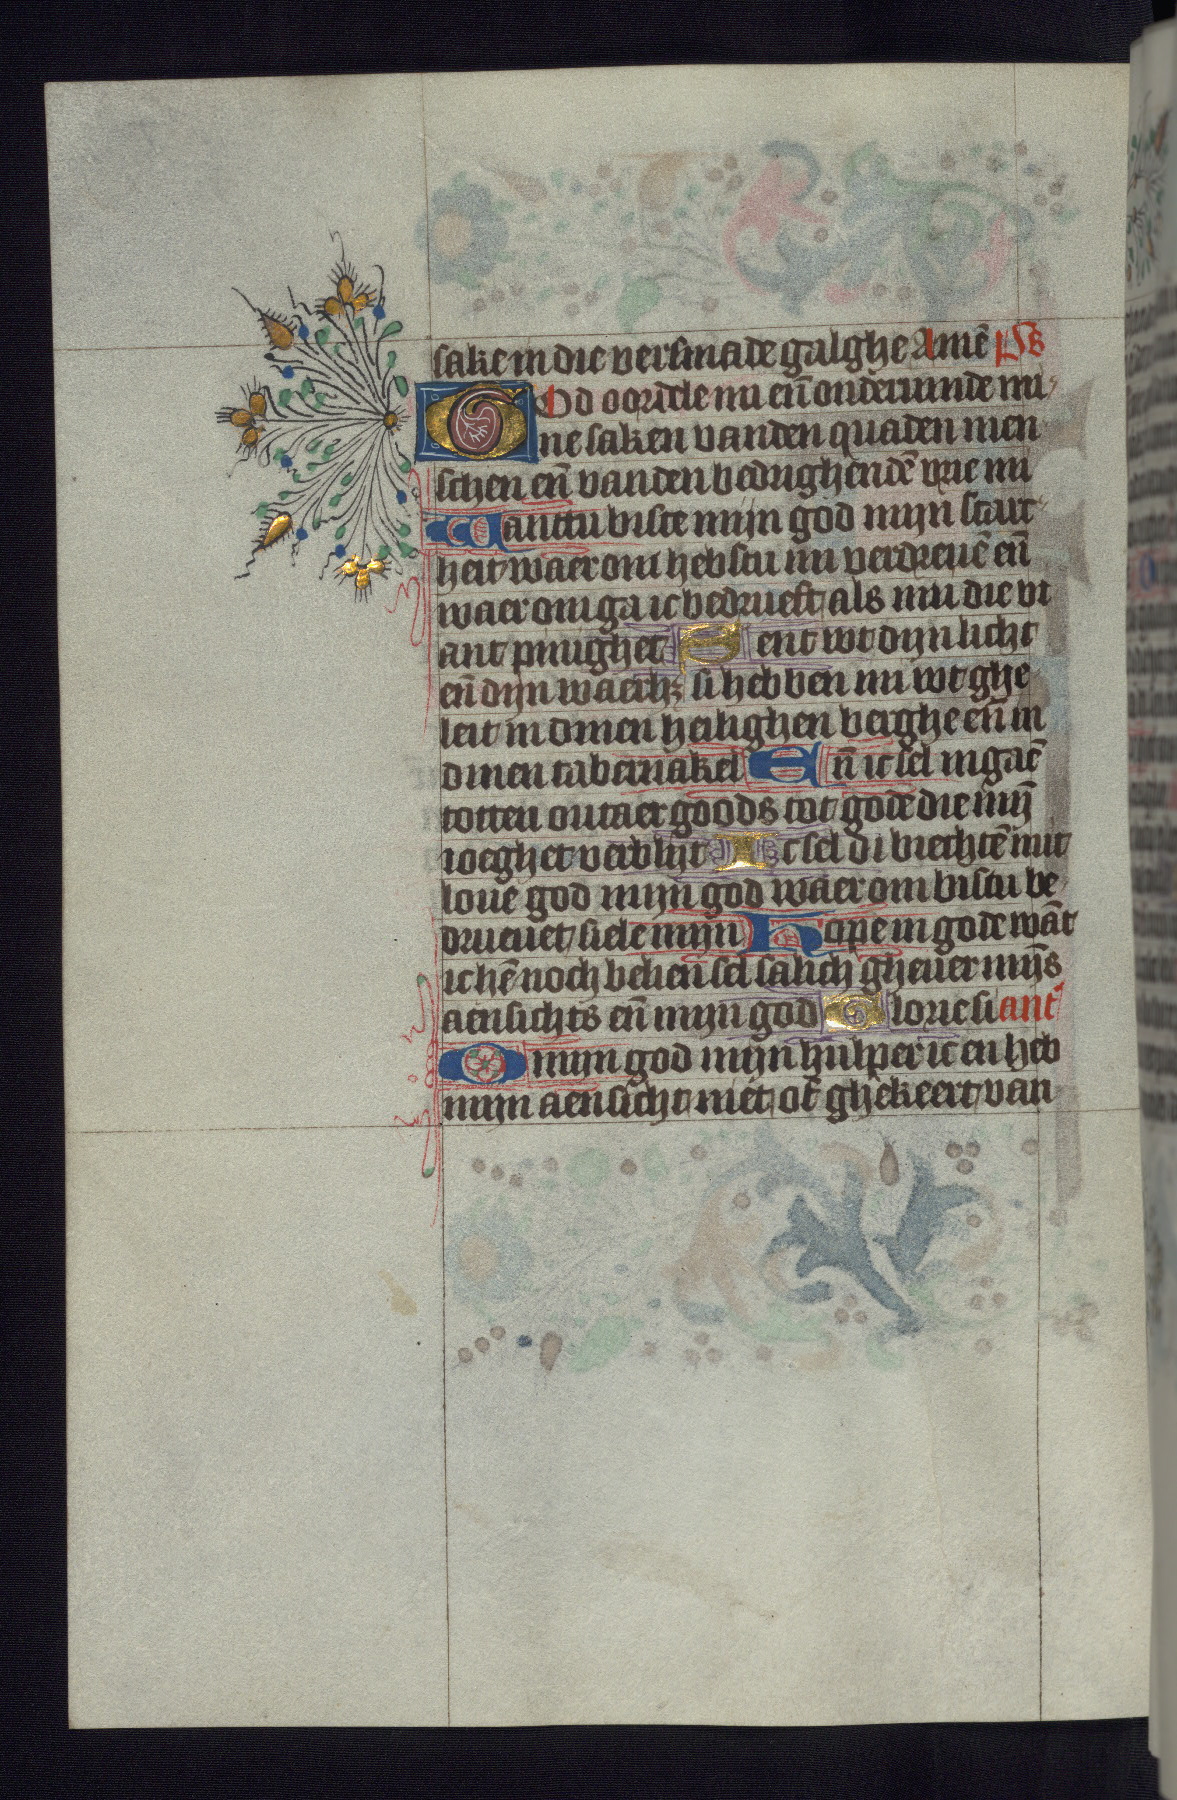 sake in die versmade galghe Amē ps
God oordele mi eñ onderuinde mi
ne saken vanden quaden men
schen eñ vanden bedrighendē vrie mi
Wanttu biste mijn god mijn starc
heit waer om hebstu mi verdreuē eñ
waer om ga ic bedrueft als mii die vi
ant pinighet Sent wt dijn licht
eñ dijn waerh₃ si hebben mi wt ghe
leit in dinen heilighen berghe eñ in
dinen tabernakel Eñ ic sel ingaē
totten outaer goods tot gode die mijn
ioeghet verblijt Ic sel di biechtē mit
loue god mijn god waer om bistu be
drueuet siele mijn Hope in gode wāt
ic hē noch belien sel salich gheuer mijs
aensichts eñ mijn god Glorie si ant
O mijn god mijn hulper ic en heb
mijn aensicht niet of ghekeert van